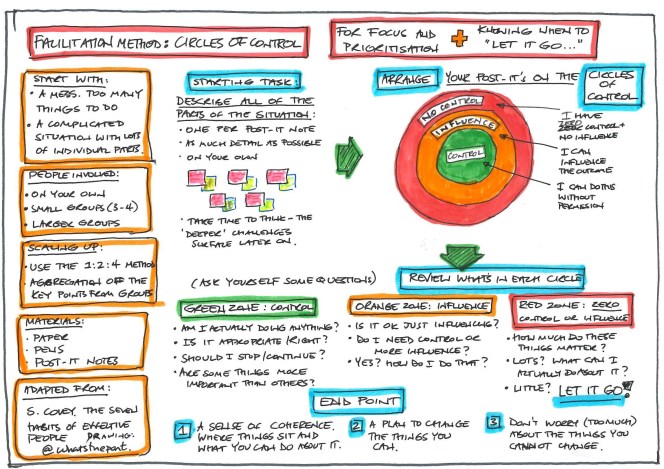 FACILITATION METHOD: CIRCLES OF CONTROL
FOR FOCUS AND
PRIORITISATION
+
KNOWING WHEN TO
"LET IT GO..."
START WITH:
• A MESS. TOO MANY
THINGS TO DO
• A COMPLICATED
SITUATION WITH LOTS
OF INDIVIDUAL PARTS.
PEOPLE INVOLVED:
• ON YOUR OWN
• SMALL GROUPS (3-4)
• LARGER GROUPS
SCALING UP:
• USE THE 1:2:4 METHOD
• AGGREGATION OFF THE
KEY POINTS FROM GROUPS
MATERIALS:
• PAPER
• PENS
• POST-IT NOTES
ADAPTED FROM:
S. COVEY, THE SEVEN
HABITS OF EFFECTIVE
PEOPLE DRAWING:
@whatsthepont.
STARTING TASK:
DESCRIBE ALL OF THE
PARTS OF THE SITUATION:
• ONE PER POST-IT NOTE
• AS MUCH DETAIL AS POSSIBLE
• ON YOUR OWN
• TAKE TIME TO THINK - THE
'DEEPER' CHALLENGES
SURFACE LATER ON.
ARRANGE YOUR POST-IT'S ON THE
CIRCLES
OF
CONTROL
NO CONTROL
INFLUENCE
CONTROL
I HAVE
ZERO CONTROL +
NO INFLUENCE
I CAN
INFLUENCE
THE OUTCOME
I CAN DO THIS
WITHOUT
PERMISSION
REVIEW WHATS IN EACH CIRCLE
(ASK YOURSELF SOME QUESTIONS)
GREEN ZONE: CONTROL
• AM I ACTUALLY DOING ANYTHING?
• IS IT APPROPRIATE/RIGHT?
• SHOULD I STOP/CONTINUE?
• ARE SOME THINGS MORE
IMPORTANT THAN OTHERS?
ORANGE ZONE: INFLUENCE
• IS IT OK JUST INFLUENCING?
• DO I NEED CONTROL OR
MORE INFLUENCE?
• YES? HOW DO I DO THAT?
RED ZONE: ZERO
CONTROL OR INFLUENCE
• HOW MUCH DO THESE
THINGS MATTER?
• LOTS? WHAT CAN I
ACTUALLY DO ABOUT IT?
• LITTLE? LET IT GO!
END POINT
1 A SENSE OF COHERENCE,
WHERE THINGS SIT AND
WHAT YOU CAN DO ABOUT IT.
2 A PLAN TO CHANGE
THE THINGS YOU
CAN.
3 DON'T WORRY (TOO MUCH)
ABOUT THE THINGS YOU
CANNOT CHANGE.